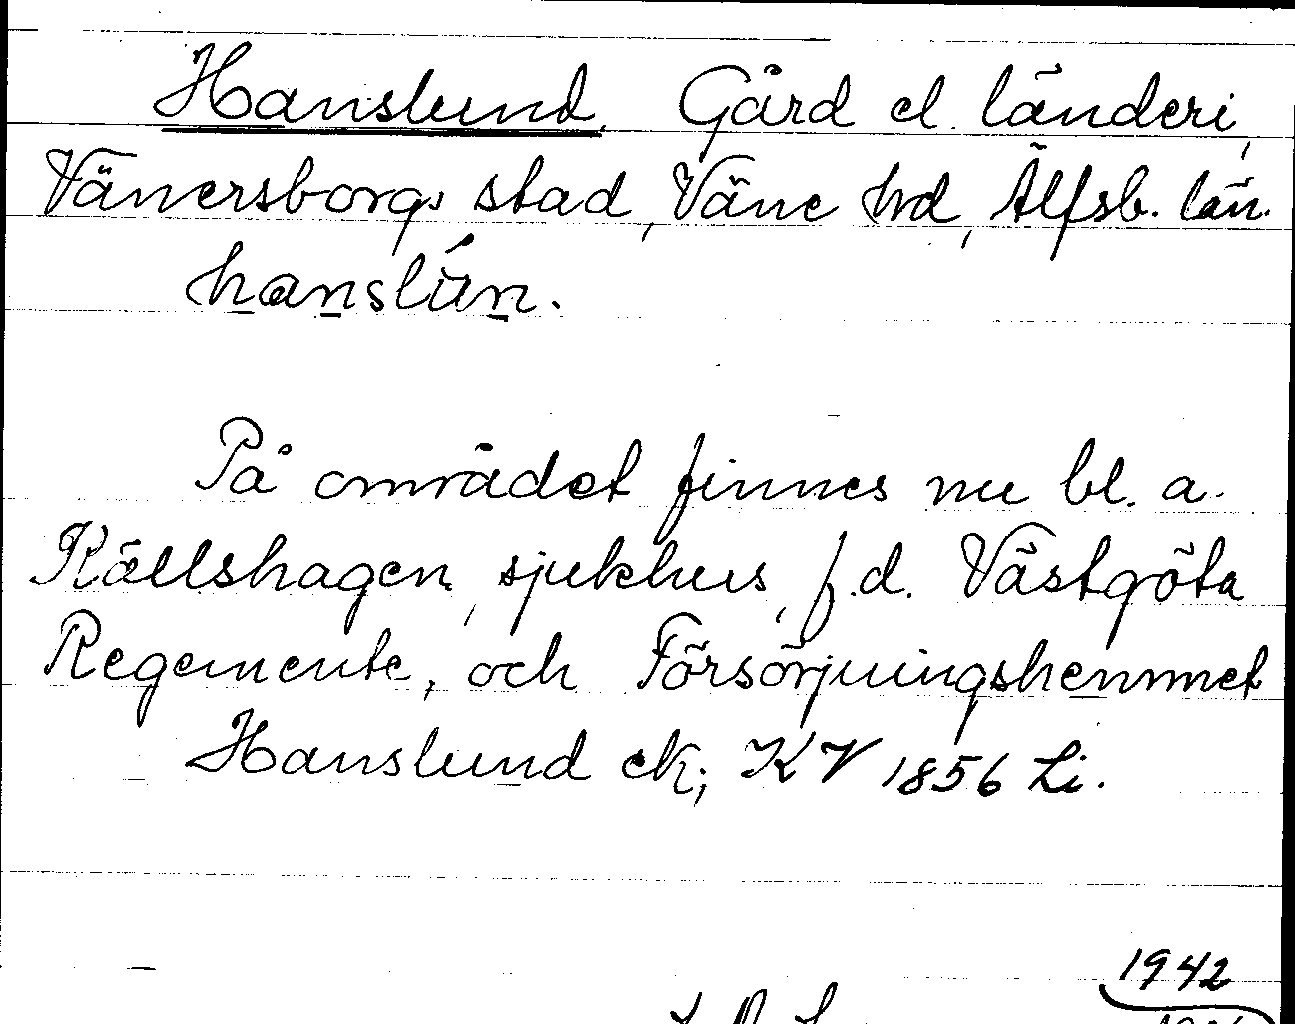 Hanslund, Gård el. länderi,
Vänersborgs stad, Väne hd, Älfsb. län.
hanslún.
På området finnes nu bl. a.
Källshagen, sjukhus, f.d. Västgöta
Regemente, och Försörjningshemmet
Hanslund ek; KV 1856 Li.
1942